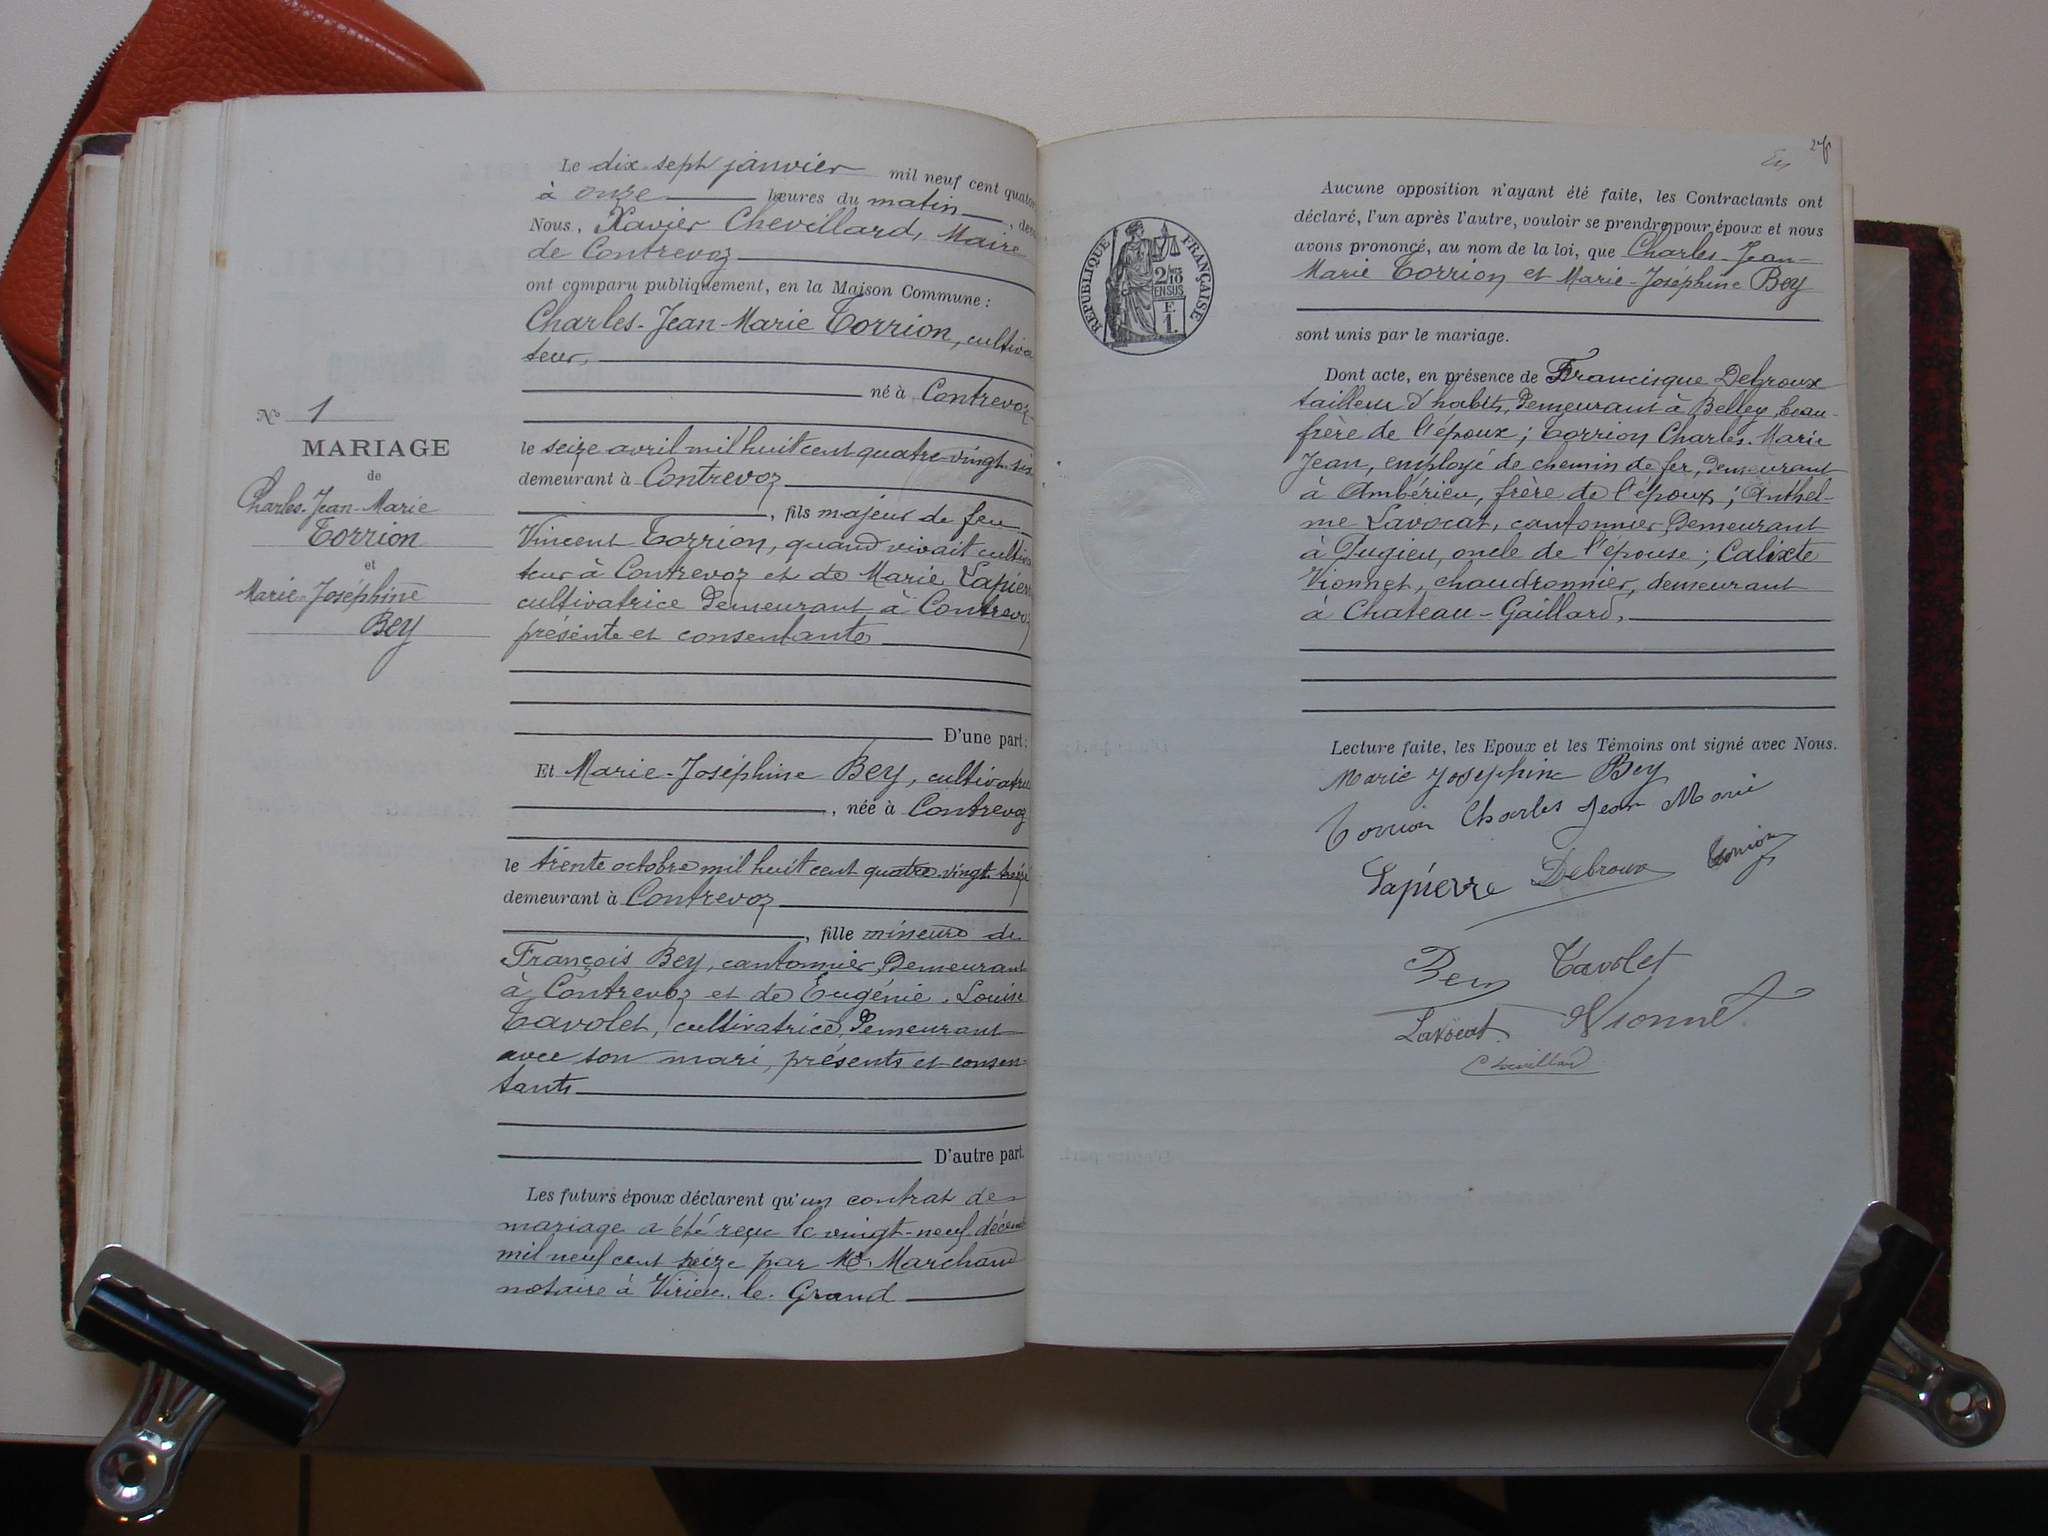 Le dix sept janvier mil neuf cent quator
à onze heures du matin, dev
Nous, Xavier Chevillard, Maire
de Contrevoz
ont comparu publiquement, en la Maison Commune :
Charles-Jean-Marie Torrion, cultiva
teur,
né à Contrevoz
le seize avril mil huit cent quatre-vingt-six
demeurant à Contrevoz
, fils majeur de feu
Vincent Torrion, quand vivait cultiva
teur à Contrevoz et de Marie Lapierre
cultivatrice demeurant à Contrevoz
présente et consentante
D'une part :
Et Marie-Joséphine Bey, cultivatrice
, née à Contrevoz
le trente octobre mil huit cent quatre-vingt-treize
demeurant à Contrevoz
, fille mineure de
François Bey, cantonnier, demeurant
à Contrevoz et de Eugénie-Louise
Tavolet, cultivatrice, demeurant
avec son mari, présents et consen-
tants
D'autre part.
Les futurs époux déclarent qu'un contrat de
mariage a été reçu le vingt-neuf décemb
mil neuf cent treize par Me. Marchand
notaire à Virieu-le-Grand
N° 1
MARIAGE
de
Charles-Jean-Marie
Torrion
et
Marie-Joséphine
Bey
RÉPUBLIQUE FRANÇAISE
2/10
EN SUS
E
1.
Aucune opposition n'ayant été faite, les Contractants ont
déclaré, l'un après l'autre, vouloir se prendre pour époux et nous
avons prononcé, au nom de la loi, que Charles-Jean-
Marie Torrion et Marie-Joséphine Bey
sont unis par le mariage.
Dont acte, en présence de Francisque Debroux
tailleur d'habits, demeurant à Belley, beau-
frère de l'époux ; Torrion Charles-Marie
Jean, employé de chemin de fer, demeurant
à Ambérieu, frère de l'époux ; Anthel-
me Lavocat, cantonnier, demeurant
à Pugieu, oncle de l'épouse ; Calixte
Vionnet, chaudronnier, demeurant
à Chateau-Gaillard.
Lecture faite, les Epoux et les Témoins ont signé avec Nous.
Marie Joséphine Bey
Torrion Charles Jean Marie
Lapierre Debroux Torrion
Bey Tavolet
Lavocat Vionnet
Chevillard